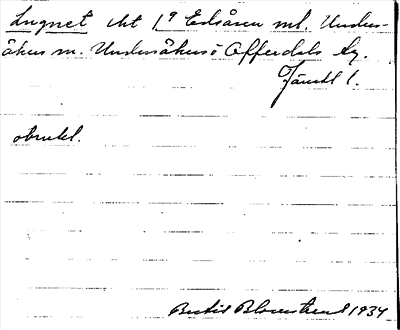 Lugnet iht 19 Edsåsen ml. Unders-
åkers m. Undersåkers i Offerdals tg.
Jämtl l.
obrukl.
Bertil Blomstrand 1934